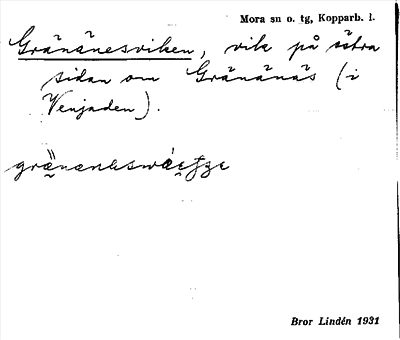 Mora sn o. tg, Kopparb. l.
Gränänesviken, vik på östra
sidan om Gränänäs (i
Venjaden).
Bror Lindén 1931